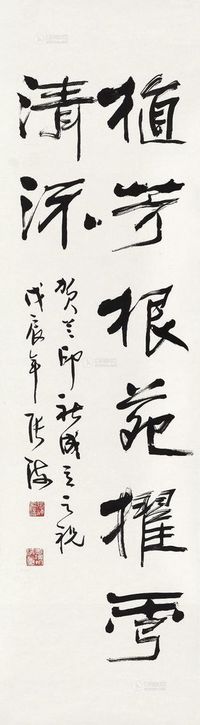 植芳根苑擢雪
清流
贺兰印社成立之祝
戊辰年 张海